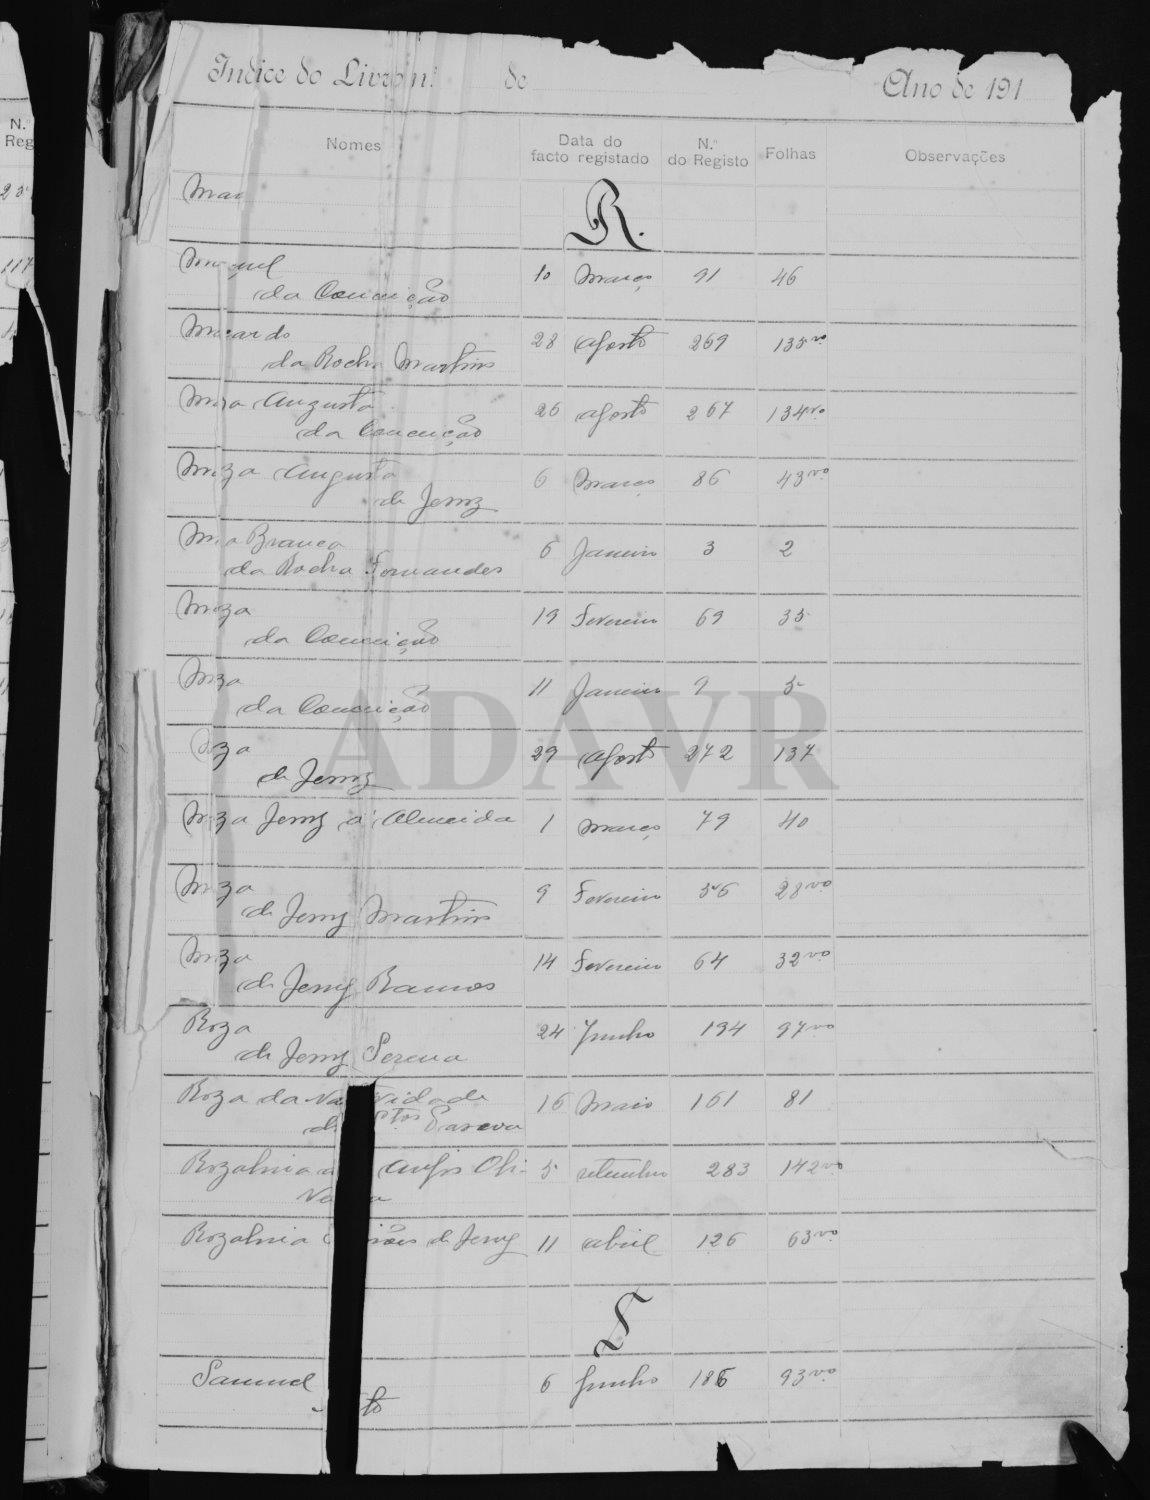 Indice do Livro n.º de Ano de 191
N.º
Reg
Nomes Data do facto registado N.º do Registo Folhas Observações
23
117
Mar
R.
quel 10 Março 91 46
da Conceição
cardo 28 Agosto 269 135vo
da Rocha Martins
Augusta 26 Agosto 267 134vo
da Conceição
za Augusta 6 Março 86 43vo
de Jesus
a Branca 6 Janeiro 3 2
da Rocha Fernandes
za 19 Fevereiro 69 35
da Conceição
za 11 Janeiro 9 5
da Conceição
oza 29 Agosto 272 137
de Jesus
za Jesus d'Almeida 1 Março 79 40
za 9 Fevereiro 56 28vo
de Jesus Martins
za 14 Fevereiro 64 32vo
de Jesus Ramos
Roza 24 Junho 194 97vo
de Jesus Serena
Roza da Na vidade 16 Maio 161 81
d stos
Rozalina 5 setembro 283 142vo
Rozalina de Jesus 11 abril 126 63vo
S
Samuel 6 Junho 186 93vo
to
ADAVR